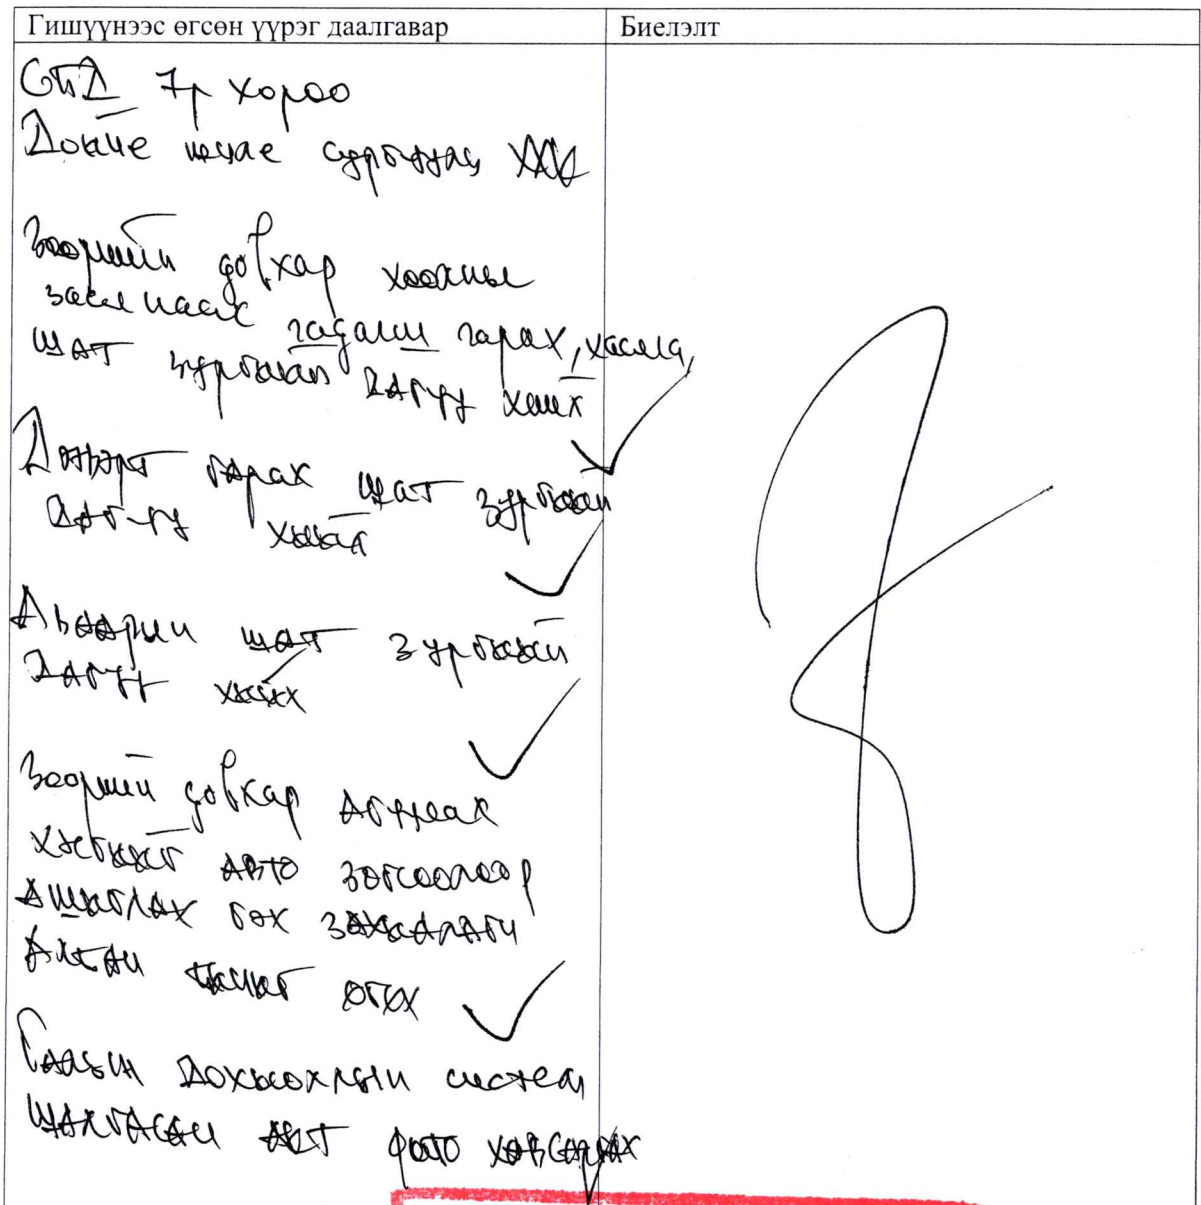 Гишүүнээс өгсөн үүрэг даалгавар
Биелэлт
СБД 7р хороо
сургууль ХХК
Зоорийн давхар хоолны
гадагш гарах, хаалга,
шат зургийн дагуу хийх
Дээвэрт гарах шат зургийн
дагуу хийх
Аваарын шат зургийн
дагуу хийх
Зоорийн давхар агуулах
хэсгийг авто зогсоолоор
ашиглах гэх захиалагч
албан бичиг өгөх
Галын дохиоллын систем
шалгасан акт фото хавсаргах